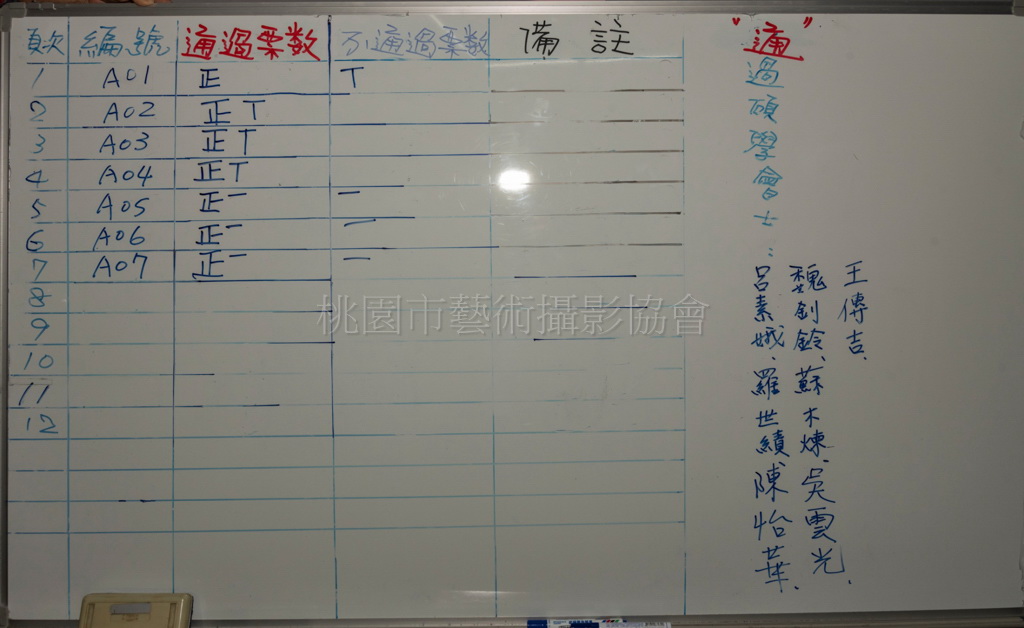 頁次 編號 通過票数 不通過票数 備註
1 A01 正 T
2 A02 正T
3 A03 正T
4 A04 正T
5 A05 正一 一
6 A06 正一 一
7 A07 正一 一
8
9
10
11
12
"通"
過碩學會士：
呂素娥、羅世績、陳怡華、
魏釗鈴、蘇木煉、吳雲光、
王傳吉、
桃園市藝術攝影協會